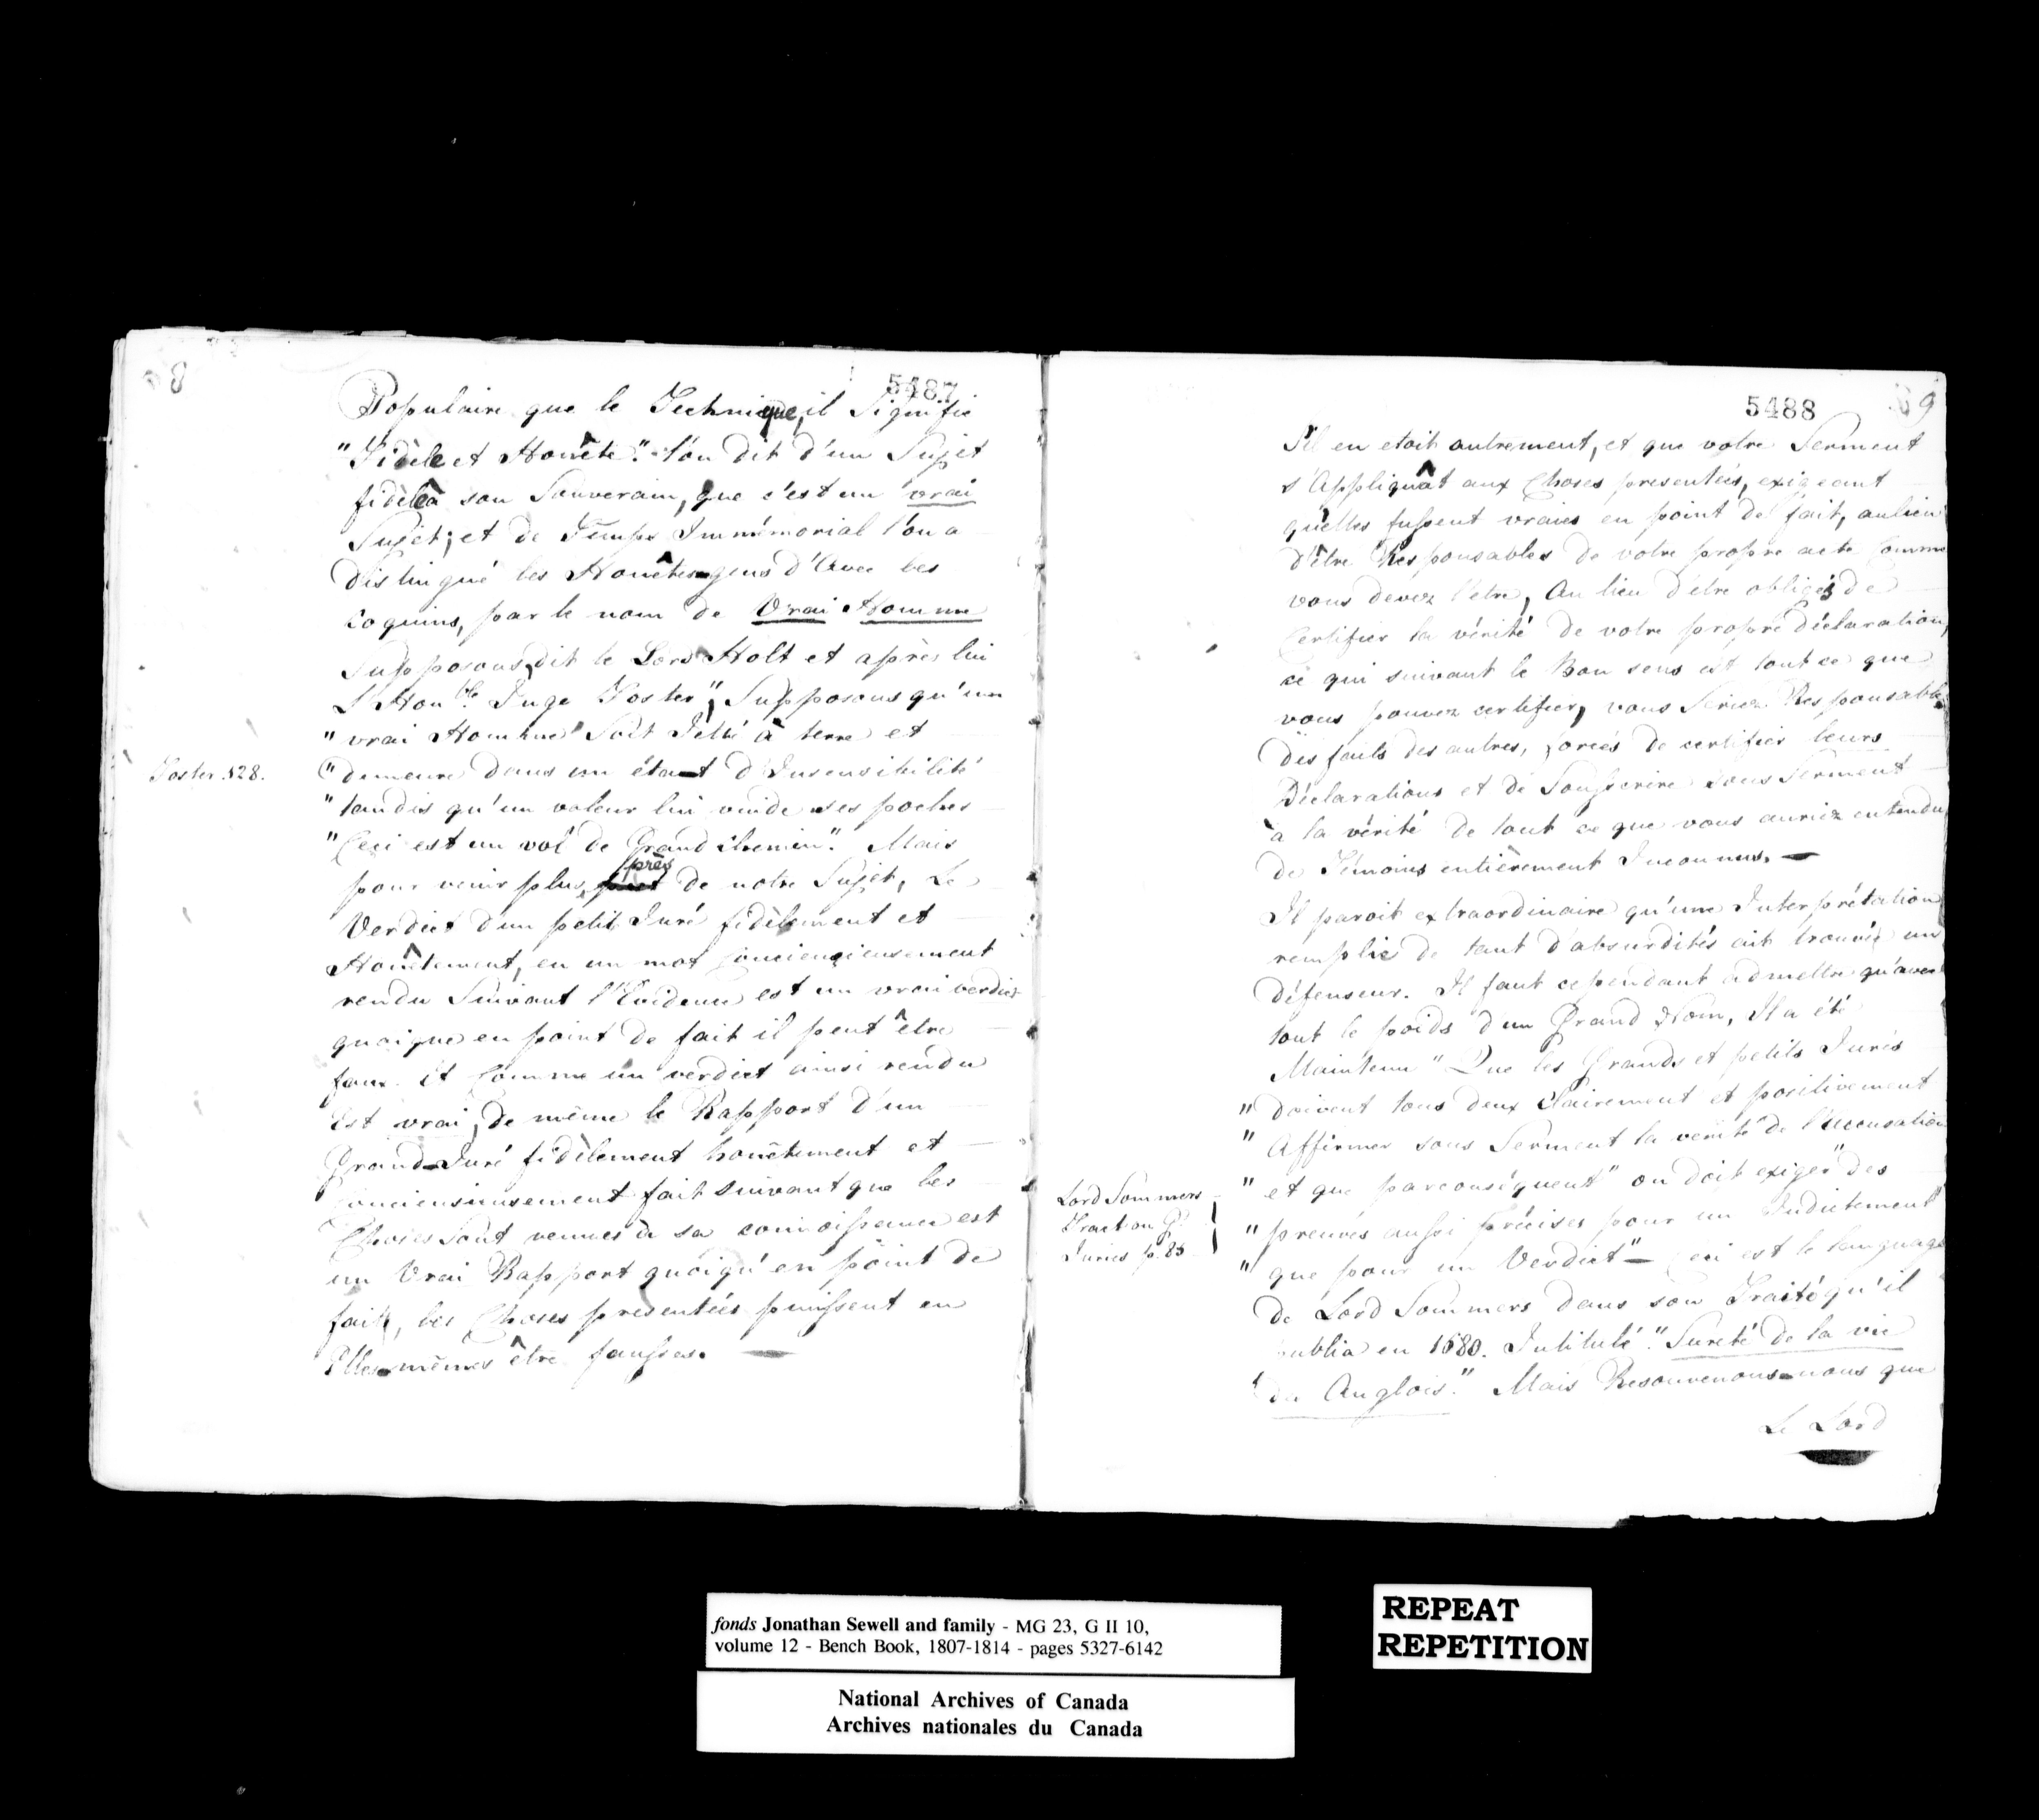 8
5487
Populaire que le Technique, il Signifie
"Fidèle et Honête." l'on dit d'un Sujet
fidèle à son Souverain, que c'est un vrai
Sujet; et de Temps Immémorial l'on a
Distingué les Honêtes-gens d'Avec les
Coquins, par le nom de Vrai Homme
Supposons, dit le Lord Holt et après lui
L'Honble. Juge Foster, "Supposons qu'un
" vrai Homme Soit Jetté à terre et
Foster. 528.
" demeure dans un état d'Insensibilité
" tandis qu'un voleur lui vuide ses poches
" Ceci est un vol de Grand chemin." Mais
près
pour venir plus de notre Sujet, Le
Verdict d'un petit Juré fidèlement et
Honêtement, en un mot Conciencieusement
rendu Suivant l'Evidence est un vrai verdict
quoique en point de fait il peut être
faux. et Comme un verdict ainsi rendu
Est vrai, de même le Rapport d'un
Grand-Juré fidèlement honêtement et
Conciensieusement fait suivant que les
Choses Sont venues à sa connoissance est
un Vrai Rapport quoiqu'en point de
fait, les Choses presentées puissent en
Elles-mêmes être fausses. —
5488
69
S'il en etoit autrement, et que votre Serment
s'Appliquât aux Choses presentées, exigeant
qu'elles fussent vraies en point de fait, au lieu
d'être Responsables de votre propre acte Comme
vous devez l'etre, Au lieu d'être obligés de
Certifier la vérité de votre propre Déclaration,
ce qui suivant le Bon sens est tout ce que
vous pouvez certifier, vous Seriez Responsables
des faits des autres, forcés de certifier leurs
Déclarations et de Souscrire sous Serment
à la vérité de tout ce que vous auriez entendu
de Témoins entièrement Inconnus. —
Il paroit extraordinaire qu'une Interprétation
remplie de tant d'absurdités ait trouvée un
défenseur. Il faut cependant admettre qu'avec
tout le poids d'un Grand Nom, Il a été
Maintenu "Que les Grands et petits Jurés
" doivent tous deux Clairement et positivement
" Affirmer sous Serment la verité de l'accusation
" et que parconséquent" on doit exiger "des
Lord Sommers
Tract on Gd
Juries p. 85
" preuves aussi précises pour un Indictement
" que pour un Verdict" — Ceci est le language
de Lord Sommers dans son Traité qu'il
publia en 1680. Intitulé. "Sureté de la vie
des Anglois." Mais Resouvenons-nous que
Le Lord
fonds Jonathan Sewell and family - MG 23, G II 10,
volume 12 - Bench Book, 1807-1814 - pages 5327-6142
REPEAT
REPETITION
National Archives of Canada
Archives nationales du Canada